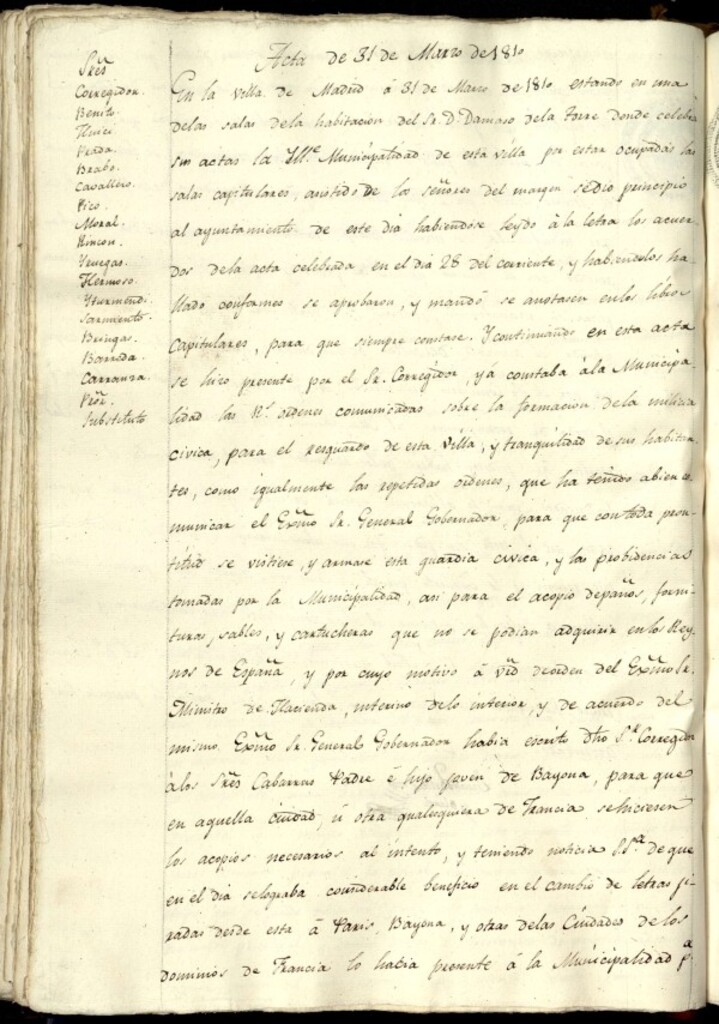 Acta de 31 de Marzo de 1810
Sres
Corregidor.
Benito.
Prada.
Brabo.
Cavallero.
Pico.
Moral.
Rincon.
Venegas.
Hermoso.
Yturmendi.
Sarmiento.
Bringas.
Barreda.
Carranza.
Pror.
Substituto
En la villa de Madrid á 31 de Marzo de 1810 estando en una
delas salas dela habitacion del Sr. D. Damaso dela Torre donde celebra
sus actas la Yllre. Municipalidad de esta villa por estar ocupadas las
salas capitulares, asistido de los señores del margen sedio principio
al ayuntamiento de este dia habiendose leydo à la letra los acuer-
dos dela acta celebrada en el dia 28 del corriente, y habiendolos ha-
llado conformes se aprobaron, y mandó se anotasen enlos libros
Capitulares, para que siempre constase. Y continuando en esta acta
se hizo presente por el Sr. Corregidor, yá constaba àla Municipa-
lidad las Rs. ordenes comunicadas sobre la formacion dela milicia
civica, para el resguardo de esta villa, y tranquilidad de sus habitan-
tes, como igualmente las repetidas ordenes, que ha tenido abien co-
municar el Exmo Sr. General Gobernador, para que contoda pron-
titud se vistiese, y armase esta guardia civica, y las probidencias
tomadas por la Municipalidad, asi para el acopio depaños, forni-
turas, sables, y cartucheras que no se podian adquirir enlos Rey-
nos de España, y por cuyo motivo á vrd deorden del Exmo Sr.
Ministro de Hacienda, interino delo interior, y de acuerdo del
mismo Exmo Sr. General Gobernador habia escrito dho Sr. Corregidor
álos Sres Cabarrus Padre é hijo joven de Bayona, para que
en aquella ciudad, ú otra qualesquiera de Francia sehiciesen
los acopios necesarios al intento, y teniendo noticia S.Sa. de que
en el dia selograba considerable beneficio en el cambio de letras ji-
radas desde esta á Paris, Bayona, y otras delas Ciudades de los
dominios de Francia lo hacia presente á la Municipalidad pa